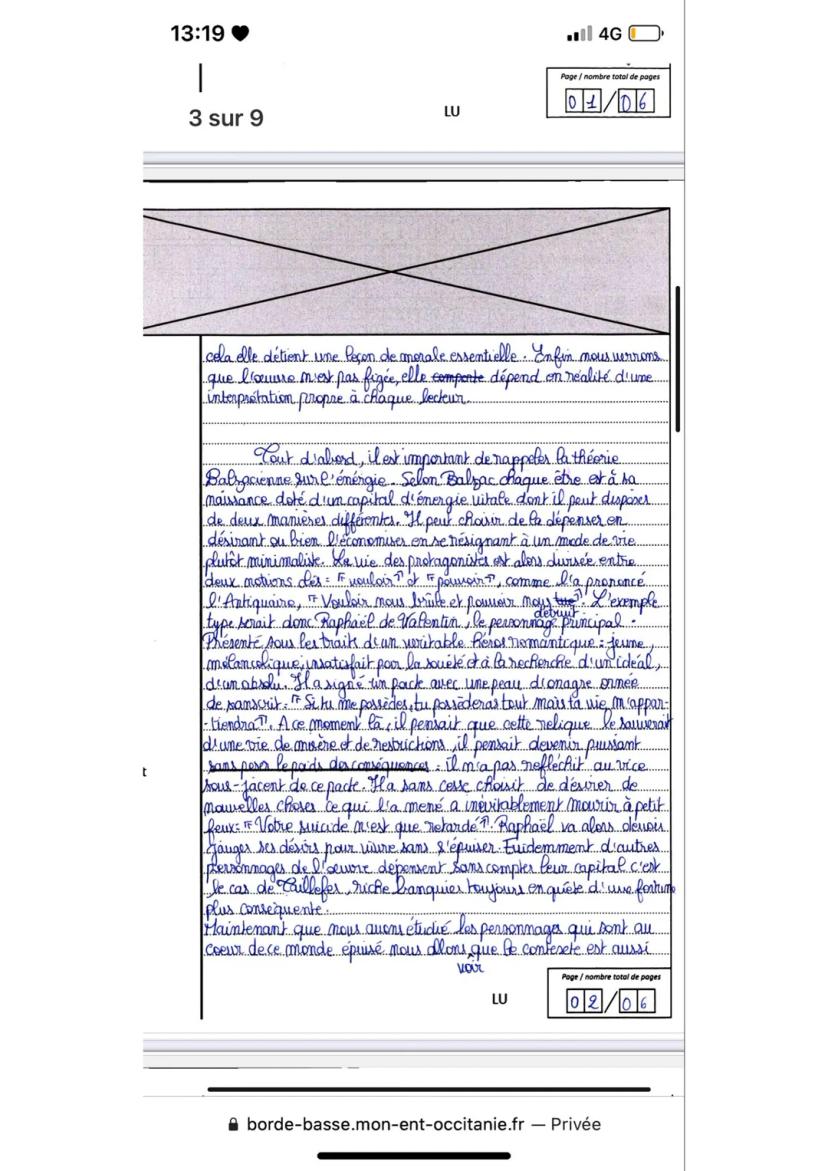 13:19
4G
Page / nombre total de pages
01/06
3 sur 9
LU
cela elle détient une leçon de morale essentielle. Enfin nous verrons
que l'œuvre n'est pas figée, elle comporte dépend en réalité d'une
interprétation propre à chaque lecteur.
Tout d'abord, il est important de rappeler la théorie
Balzacienne sur l'énergie. Selon Balzac chaque être est à sa
naissance doté d'un capital d'énergie vitale dont il peut disposer
de deux manières différentes. Il peut choisir de le dépenser en
désirant ou bien l'économiser en se résignant à un mode de vie
plutôt minimaliste. La vie des protagonistes est alors divisée entre
deux notions clés : "vouloir" et "pouvoir", comme l'a prononcé
l'Antiquaire, "Vouloir nous brûle et pouvoir nous tue détruit". L'exemple
type serait donc Raphaël de Valentin, le personnage principal.
Présenté sous les traits d'un véritable héros romantique : jeune,
mélancolique, insatisfait par la société et à la recherche d'un idéal,
d'un absolu. Il a signé un pack avec une peau d'onagre ornée
de sanscrit : "Si tu me possèdes, tu possèderas tout mais ta vie m'appar-
-tiendra". A ce moment là, il pensait que cette relique le sauverait
d'une vie de misère et de restrictions, il pensait devenir puissant
sans peser le poids des conséquences : il n'a pas réfléchit au vice
sous-jacent de ce pacte. Il a sans cesse choisit de désirer de
nouvelles choses ce qui l'a mené a inévitablement mourir à petit
feux : "Votre suicide n'est que retardé". Raphaël va alors devoir
jauger ses désirs pour vivre sans s'épuiser. Evidemment d'autres
personnages de l'œuvre dépensent sans compter leur capital c'est
le cas de Taillefer, riche banquier toujours en quête d'une fortune
plus conséquente.
Maintenant que nous avons étudié les personnages qui sont au
coeur de ce monde épuisé nous allons voir que le contexte est aussi
t
LU
Page / nombre total de pages
02/06
borde-basse.mon-ent-occitanie.fr — Privée